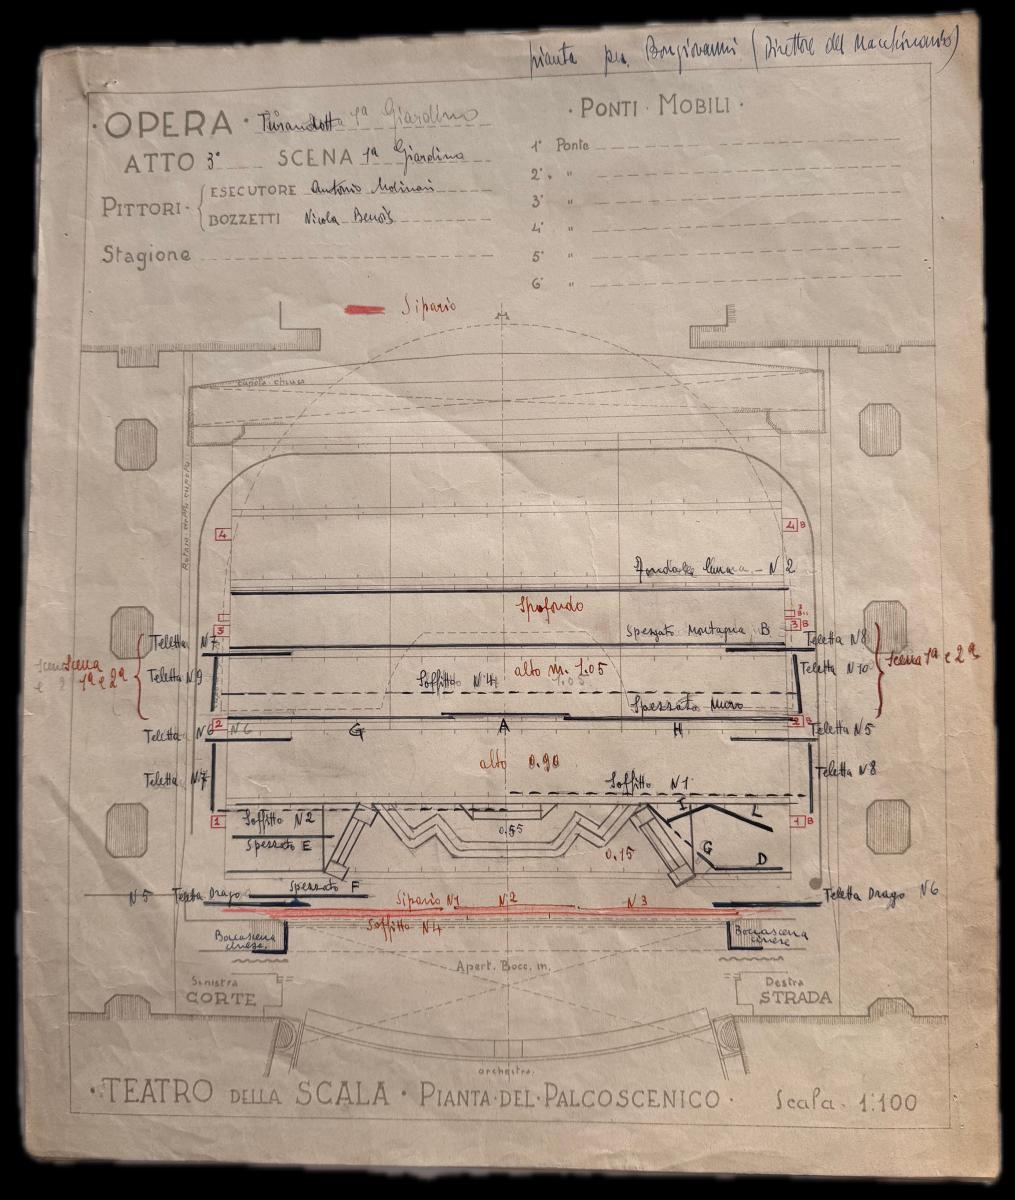 pianta per Bongiovanni (Direttore del Macchinario)
· OPERA · Turandotta 1ª Giardino
ATTO 3° SCENA 1ª Giardino
PITTORI · ESECUTORE Antonio Molinari
BOZZETTI Nicola Benois
Stagione
· PONTI · MOBILI ·
1° Ponte
2° "
3° "
4° "
5° "
6° "
Sipario
cupola chiusa
4
4 B
Fondale Luna - N 2
Sprofondo
3
3 B
Spezzato Montagna B
Teletta N7
Teletta N8
Scena 1ª e 2ª
Scena 1ª e 2ª
Teletta N9
Soffitto N4
alto m. 1.05
1.05
Teletta N10
Spezzato Muro
2
2 B
G
A
H
Teletta N6 N6
Teletta N5
alto 0.90
Teletta N7
Soffitto N1
Teletta N8
1
1 B
Soffitto N2
I
L
0.55
Spezzato E
G
0.15
D
Spezzato F
N5 Teletta Drago
Teletta Drago N6
Sipario N1 N2 N3
Soffitto N4
Boccascena cinese
Boccascena cinese
Apert. Bocc. m.
Sinistra
CORTE
Destra
STRADA
orchestra.
· TEATRO DELLA SCALA · PIANTA · DEL · PALCOSCENICO · Scala · 1:100